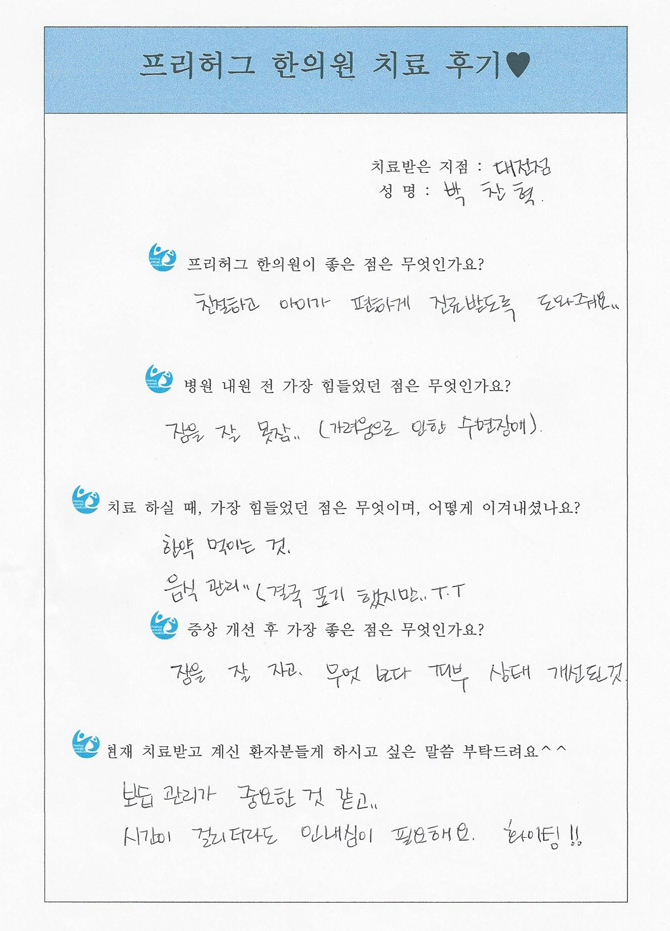 프리허그 한의원 치료 후기♥
치료받은 지점 : 대전점
성 명 : 박 찬 혁.
프리허그 한의원이 좋은 점은 무엇인가요?
친절하고 아이가 편하게 진료받도록 도와줘요..
병원 내원 전 가장 힘들었던 점은 무엇인가요?
잠을 잘 못잠.. (가려움으로 인한 수면장애).
치료 하실 때, 가장 힘들었던 점은 무엇이며, 어떻게 이겨내셨나요?
한약 먹이는 것.
음식 관리.. (결국 포기 했지만.. T.T
증상 개선 후 가장 좋은 점은 무엇인가요?
잠을 잘 자고. 무엇 보다 피부 상태 개선된것.
현재 치료받고 계신 환자분들게 하시고 싶은 말씀 부탁드려요^^
보습 관리가 중요한 것 같고..
시간이 걸리더라도 인내심이 필요해요. 화이팅!!